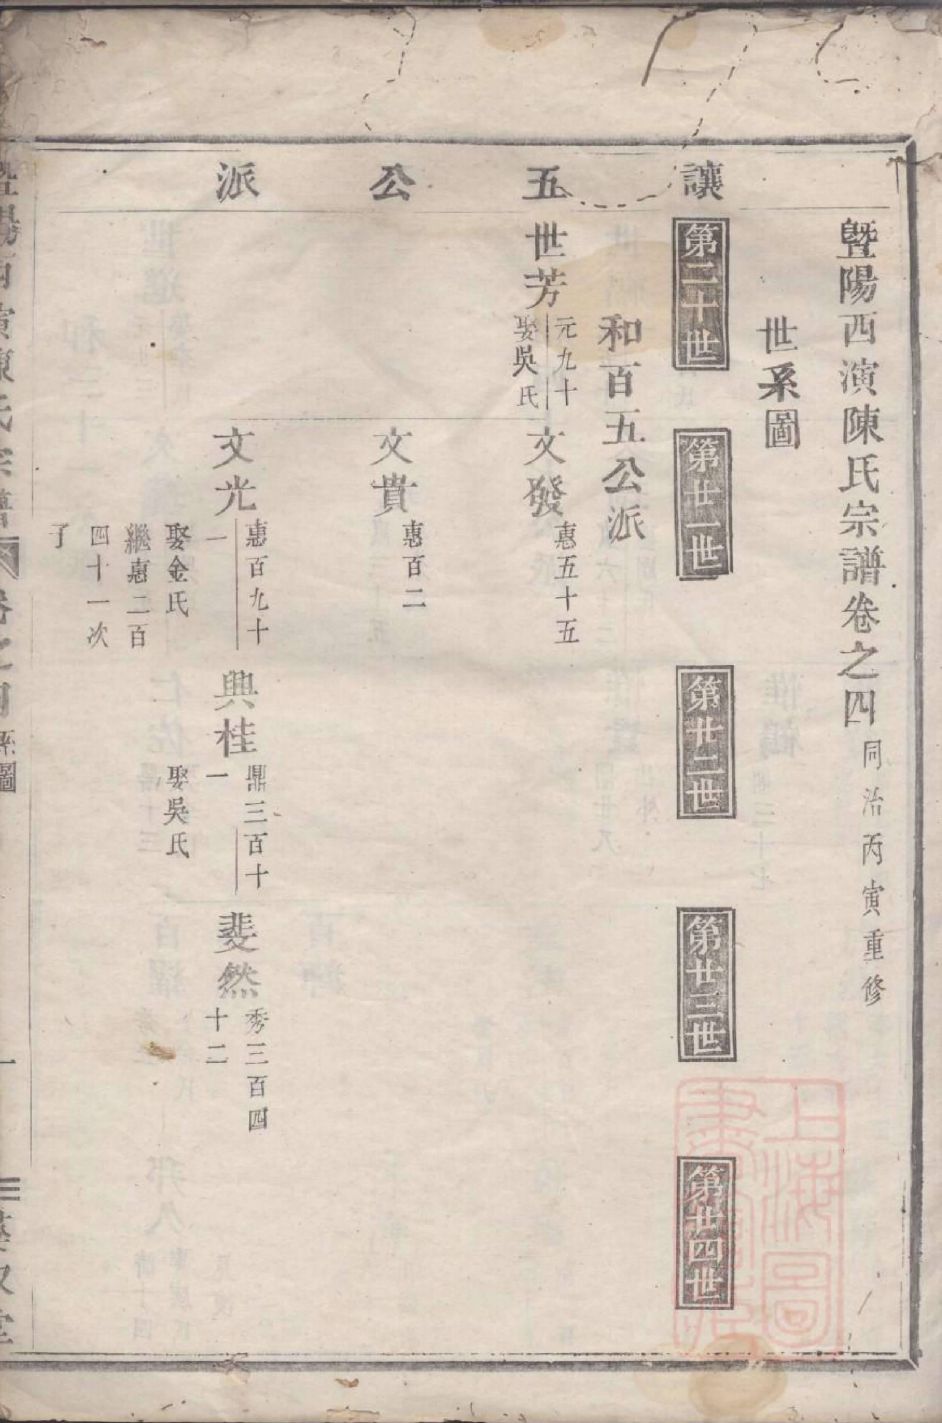 讓五公派
暨陽西演陳氏宗譜卷之四同治丙寅重修
世系圖
第二十世
第廿一世
第廿二世
第廿三世
第廿四世
和百五公派
世芳
元九十
娶吳氏
文發
惠五十五
文貴
惠百二
文光
惠百九十
一
娶金氏
繼惠二百
四十一次
了
興桂
鼎三百十
一
娶吳氏
斐然
秀三百四
十二
暨陽西演陳氏宗譜 卷之四 系圖 一
上海圖
書館藏